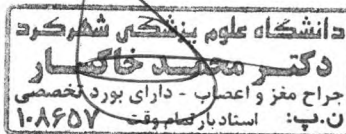 دانشگاه علوم پزشکی شهرکرد
دکتر محمد خاکسار
جراح مغز و اعصاب - دارای بورد تخصصی
ن.پ: استادیار تمام وقت ۱۰۸۶۵۷